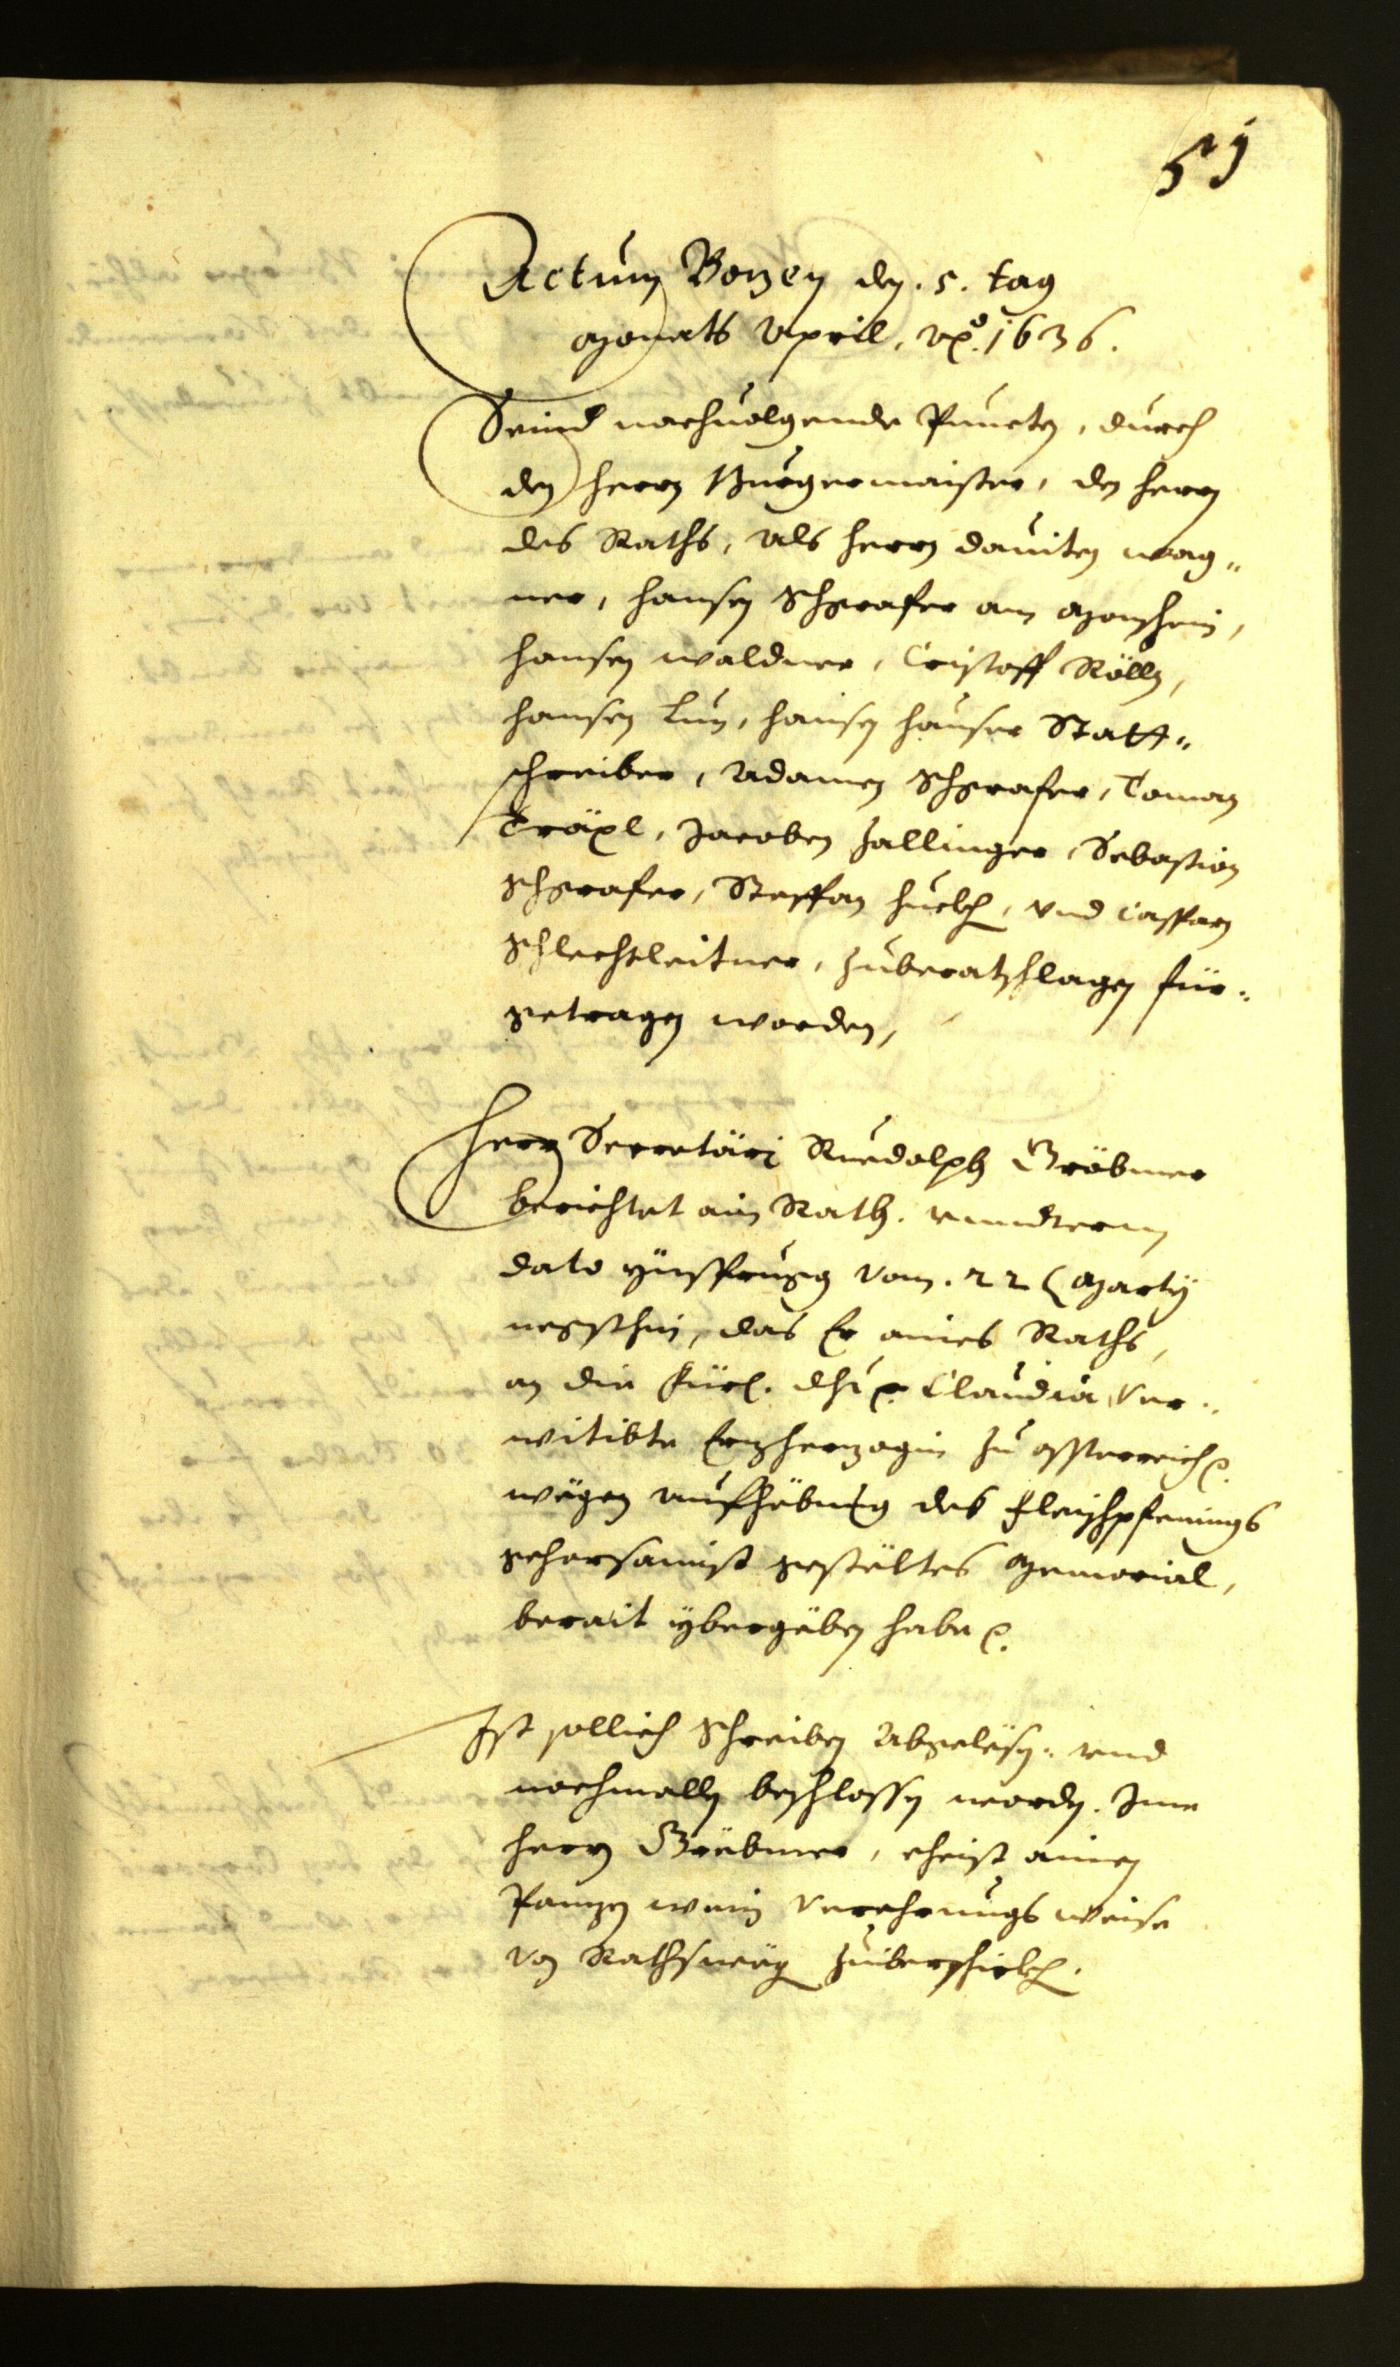 51
Actum Botzen den .5. tag
Monats Aprill, A͠o. 1636.
Seind nachuolgende Puncten, durch
den herrn Burgermaister, den herrn
des Raths, als herrn Dauiten Wag„
ner, hansen Schgrafer am Monschein,
hansen Waldner, Cristoff Röll,
hansen Lun, hansen hauser Statt„
schreiber, Adamen Schgrafer, Toman
Träxl, Jacoben Zallinger, Sebastian
Schgrafer, Steffan huebl, vnd Casparn
Schlechtleitner, Zuberatschlagen für„
getragen worden,
Herr Secretäri Ruedolph Gräbmer
berichtet ain Rath. vnnderm
dato Ynsprugg vom .22 Marty
negsthin, das Er aines Raths,
an die Fürl. Dht. Claudia, Ver„
witibte Erzherzogin zu Össterreich
wegen aufhebung des fleischpfenings
gehorsamist gestältes Memorial,
berait ybergeben habe
Ist sollich Schreiben Abgelesen. vnd
nachmalln beschlossen worden. Ime
herrn Gräbmer, ehist ainen
Panzen wein Verehrungs weise
von Rathsweg zuiberschickhen.